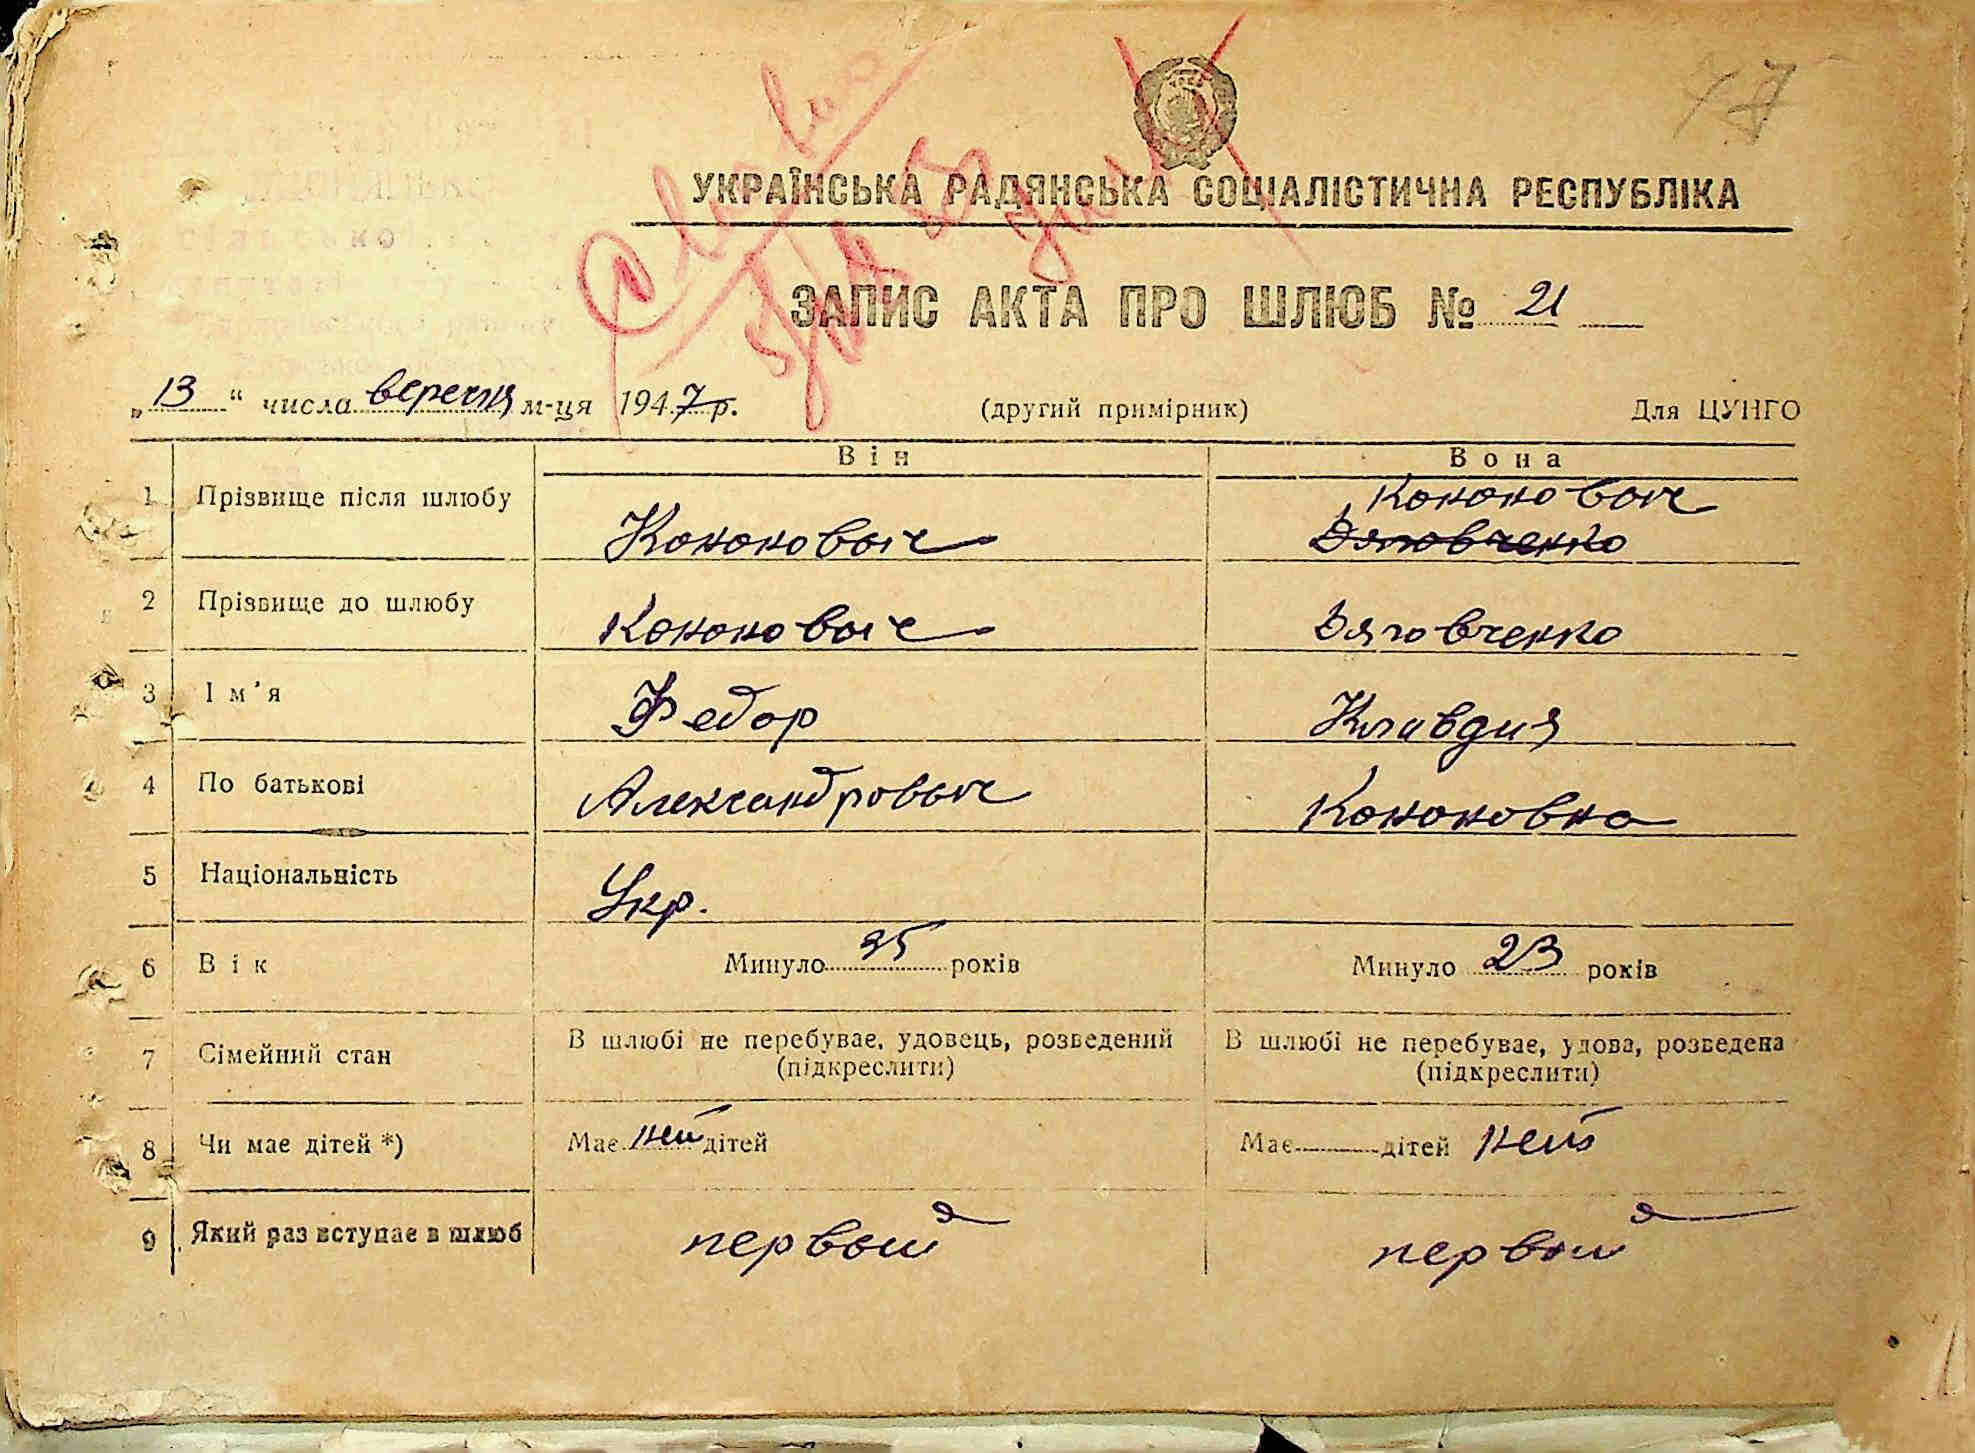 17
УКРАЇНСЬКА РАДЯНСЬКА СОЦІАЛІСТИЧНА РЕСПУБЛІКА
ЗАПИС АКТА ПРО ШЛЮБ № 21
„13“ числа вересня м-ця 1947 р. (другий примірник) Для ЦУНГО
Він Вона
1 Прізвище після шлюбу Кононовыч Кононовыч
Дяговченко
2 Прізвище до шлюбу Кононовыч Дяговченко
3 Ім'я Федор Клавдия
4 По батькові Александровыч Кононовна
5 Національність Укр.
6 Вік Минуло 25 років Минуло 23 років
7 Сімейний стан В шлюбі не перебуває, удовець, розведений В шлюбі не перебуває, удова, розведена
(підкреслити) (підкреслити)
8 Чи має дітей *) Має нет дітей Має дітей нет
9 Який раз вступає в шлюб первый первый